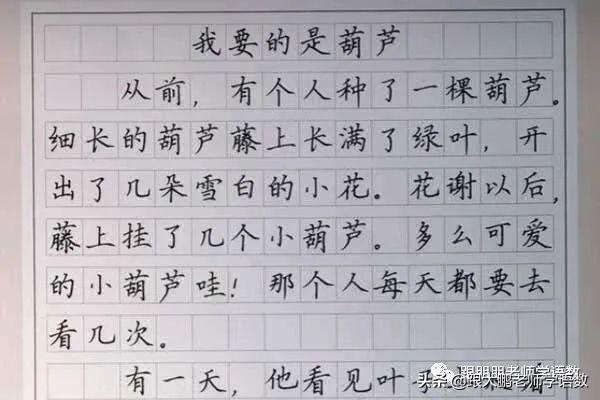 我要的是葫芦
从前，有个人种了一棵葫芦。
细长的葫芦藤上长满了绿叶，开
出了几朵雪白的小花。花谢以后，
藤上挂了几个小葫芦。多么可爱
的小葫芦哇！那个人每天都要去
看几次。
有一天，他看见叶
跟朋朋老师学语数
头条@跟大鹏老师学语数